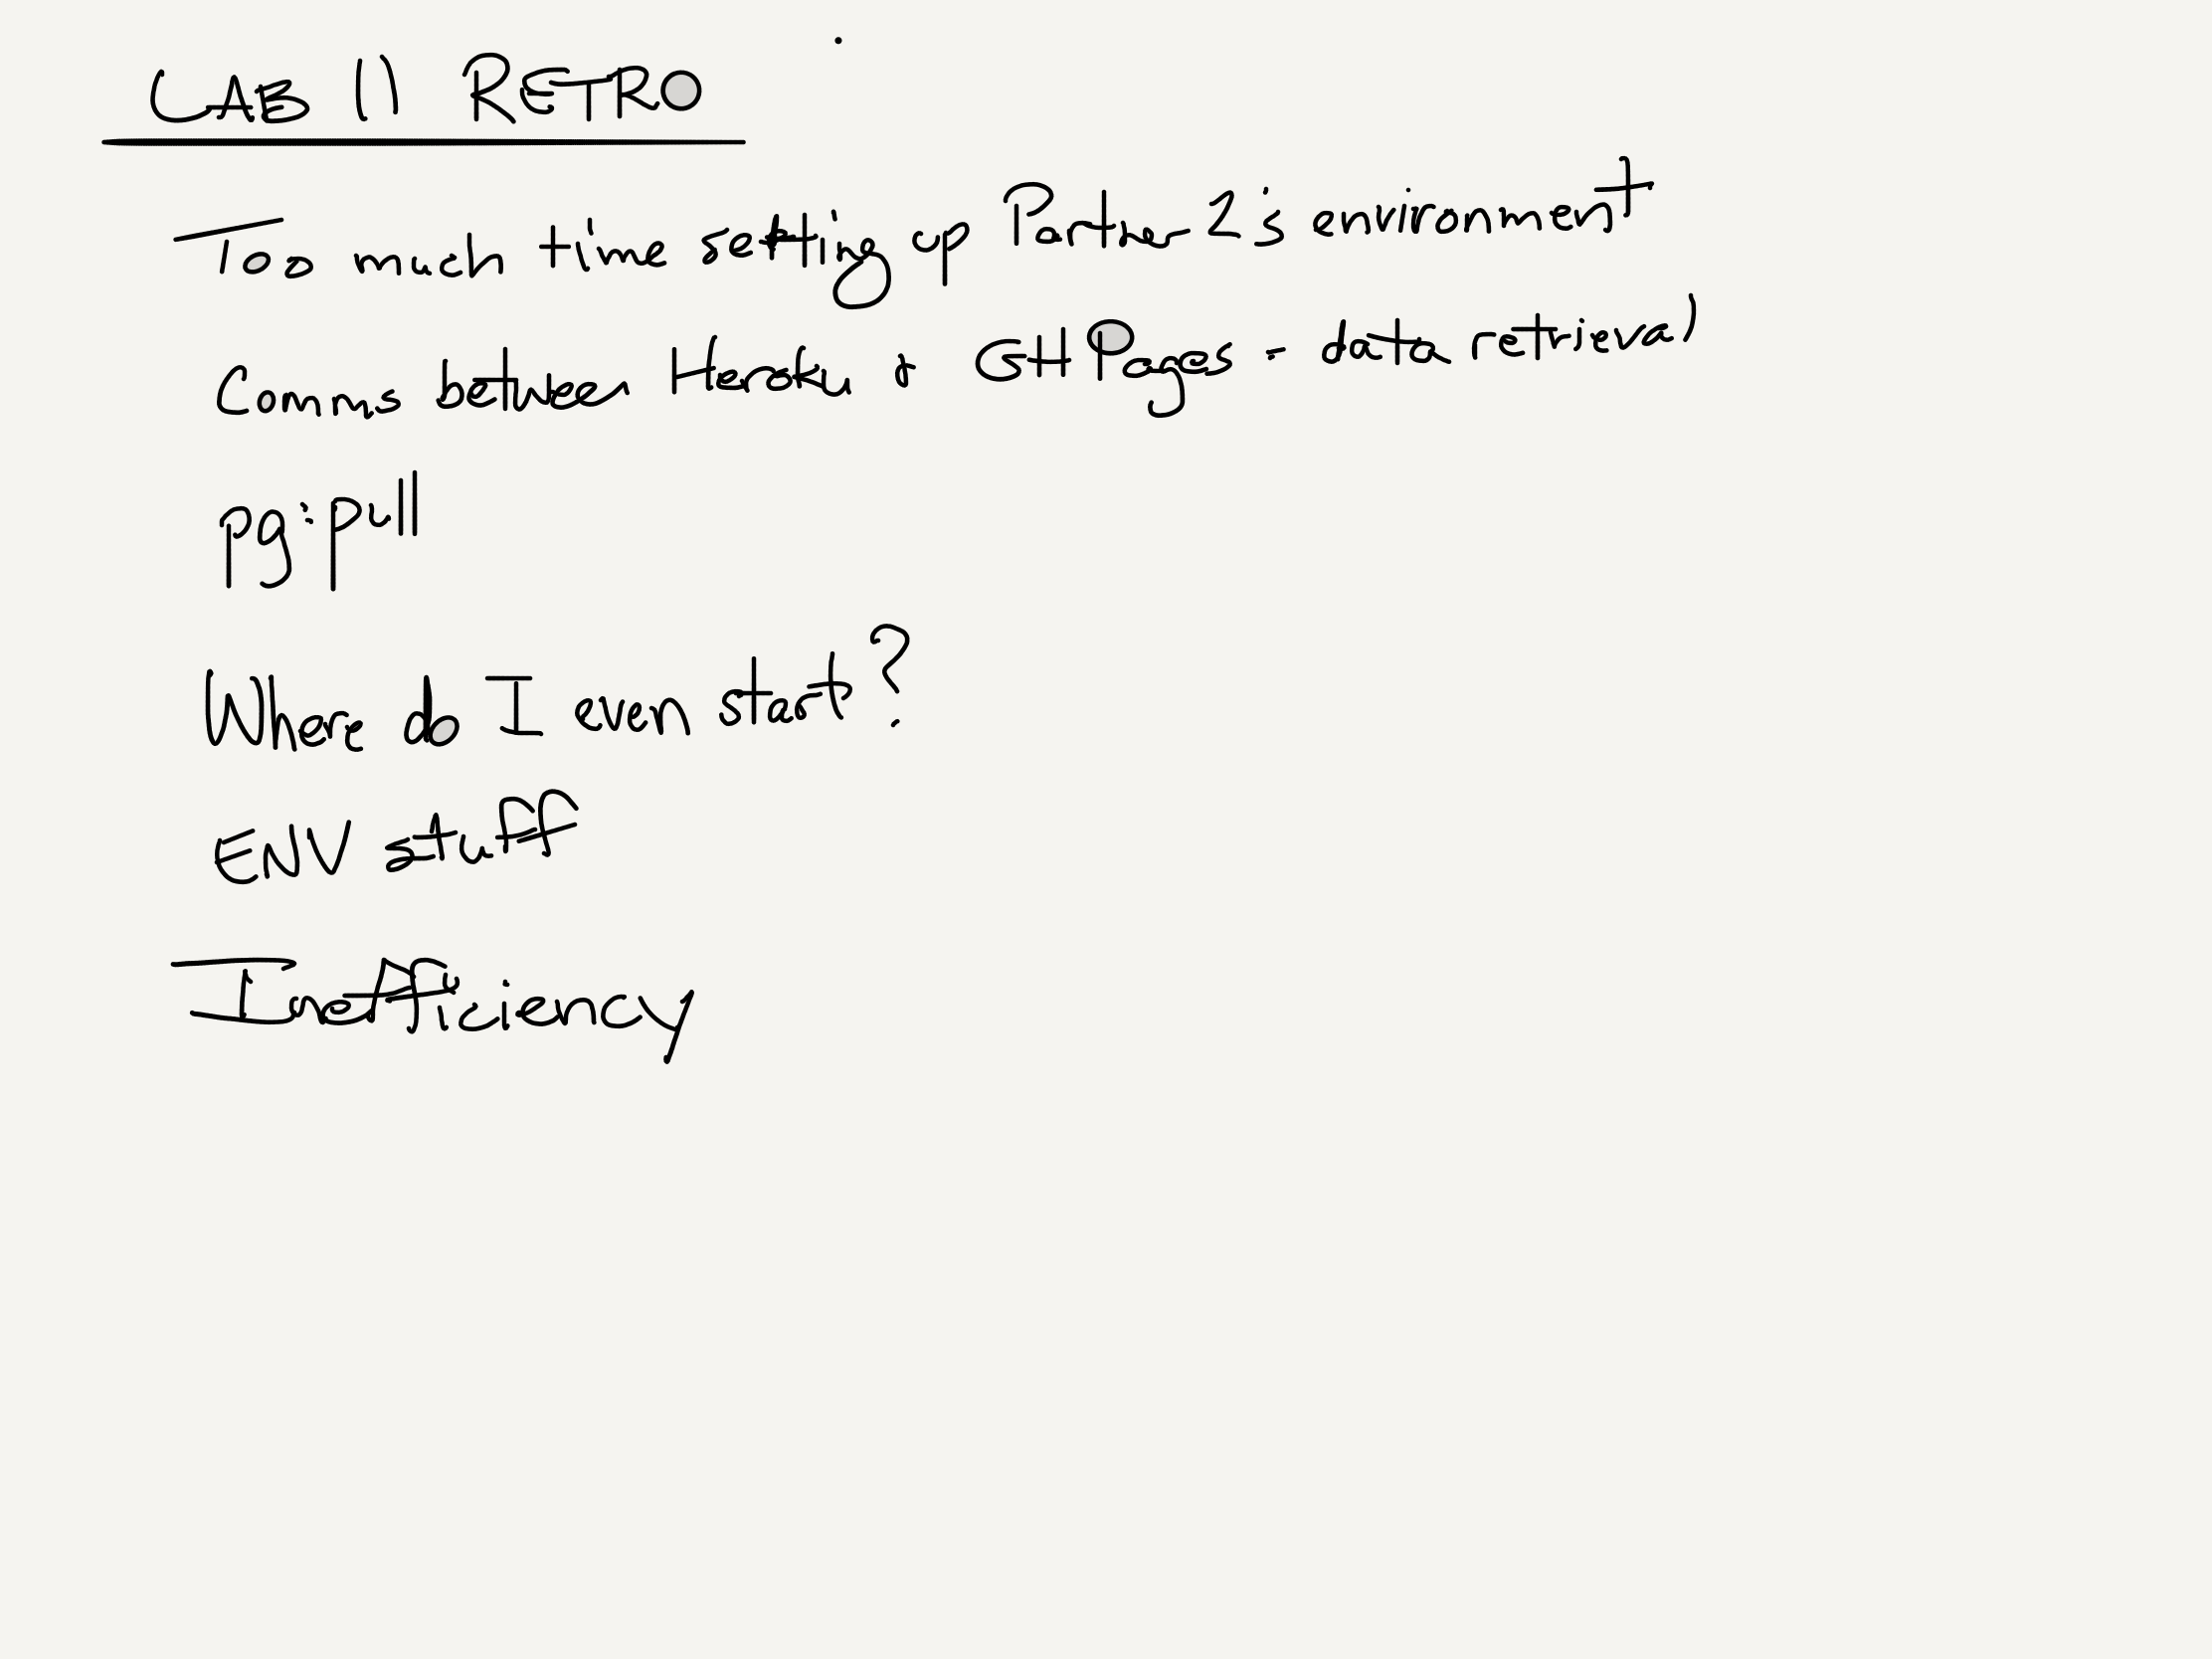 LAB 11 RETRO
Too much time setting up Partner 2's environment
Comms between Heroku + GH Pages - data retrieval
pg:pull
Where do I even start?
ENV stuff
Inefficiency